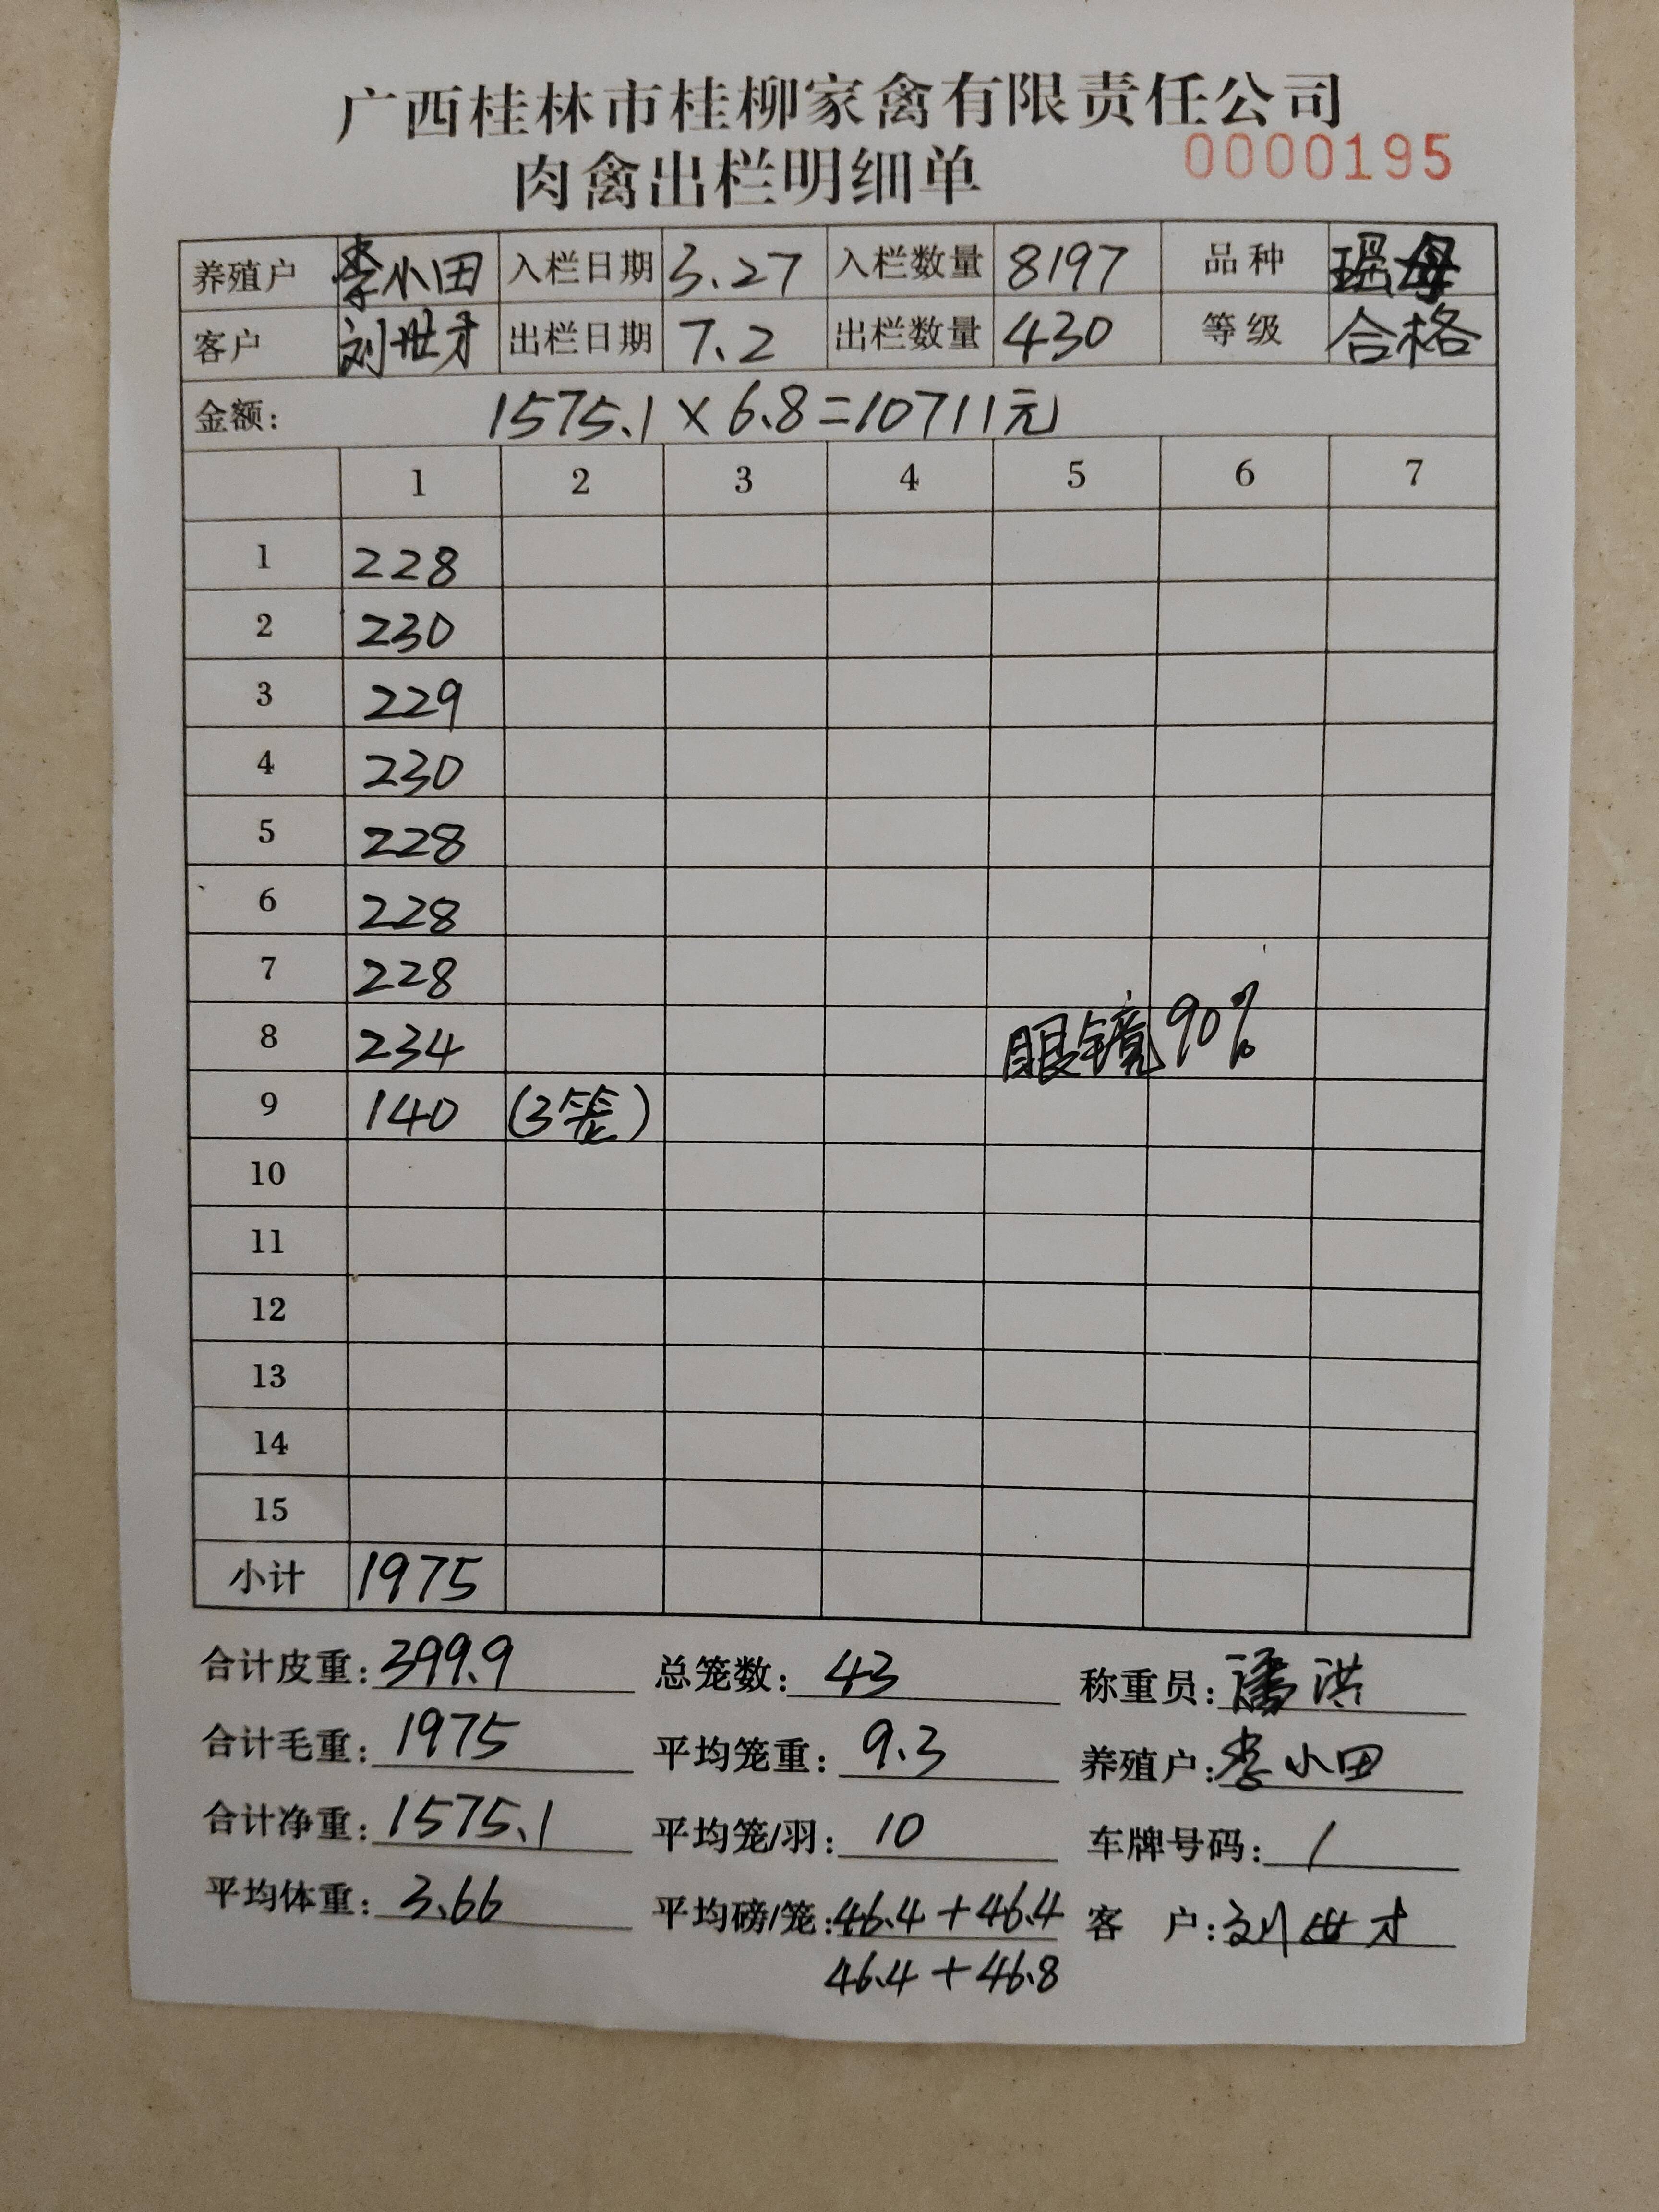 广西桂林市桂柳家禽有限责任公司
肉禽出栏明细单 0000195
养殖户 李小田 入栏日期 3.27 入栏数量 8197 品种 瑶母
客户 刘世才 出栏日期 7.2 出栏数量 430 等级 合格
金额: 1575.1×6.8=10711元
1 2 3 4 5 6 7
1 228
2 230
3 229
4 230
5 228
6 228
7 228
8 234 眼镜90%
9 140 (3笼)
10
11
12
13
14
15
小计 1975
合计皮重: 399.9 总笼数: 43 称重员: 潘洪
合计毛重: 1975 平均笼重: 9.3 养殖户: 李小田
合计净重: 1575.1 平均笼/羽: 10 车牌号码: /
平均体重: 3.66 平均磅/笼: 46.4+46.4 客户: 刘世才
46.4+46.8